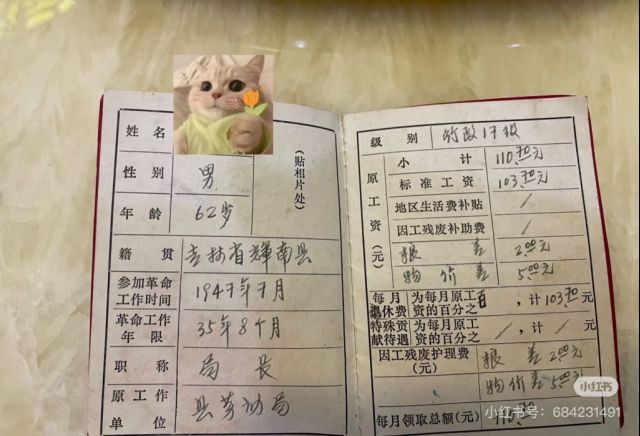 姓名
性别 男
年龄 62岁
(贴相片处)
籍贯 吉林省辉南县
参加革命工作时间 1947年7月
革命工作年限 35年8个月
职称 局长
原工作单位 县劳动局
级别 行政17级
原工资(元)
小计 110.70元
标准工资 103.70元
地区生活费补贴 /
因工残废补助费 /
粮差 2.00元
物价差 5.00元
每月退休费 为每月原工资的百分之百,计103.70元
特殊贡献待遇 为每月原工资的百分之 / ,计 / 元
因工残废护理费(元) 粮差 2.00元
物价差 5.00元
每月领取总额(元)
小红书
小红书号:684231491